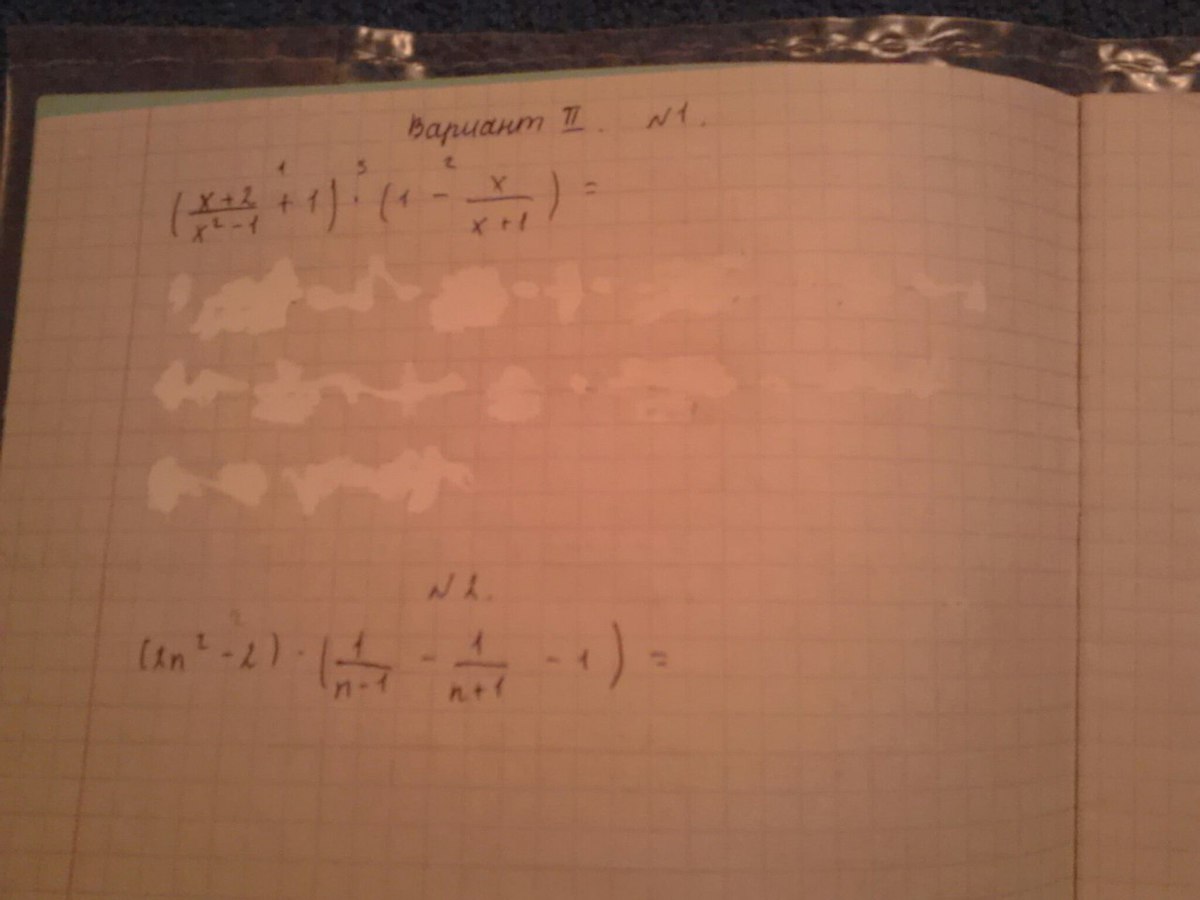 Вариант II. №1.
(x+2/x²-1 + 1) · (1 - x/x+1) =
1 3 2
№2.
(2n² - 2) · (1/n-1 - 1/n+1 - 1) =